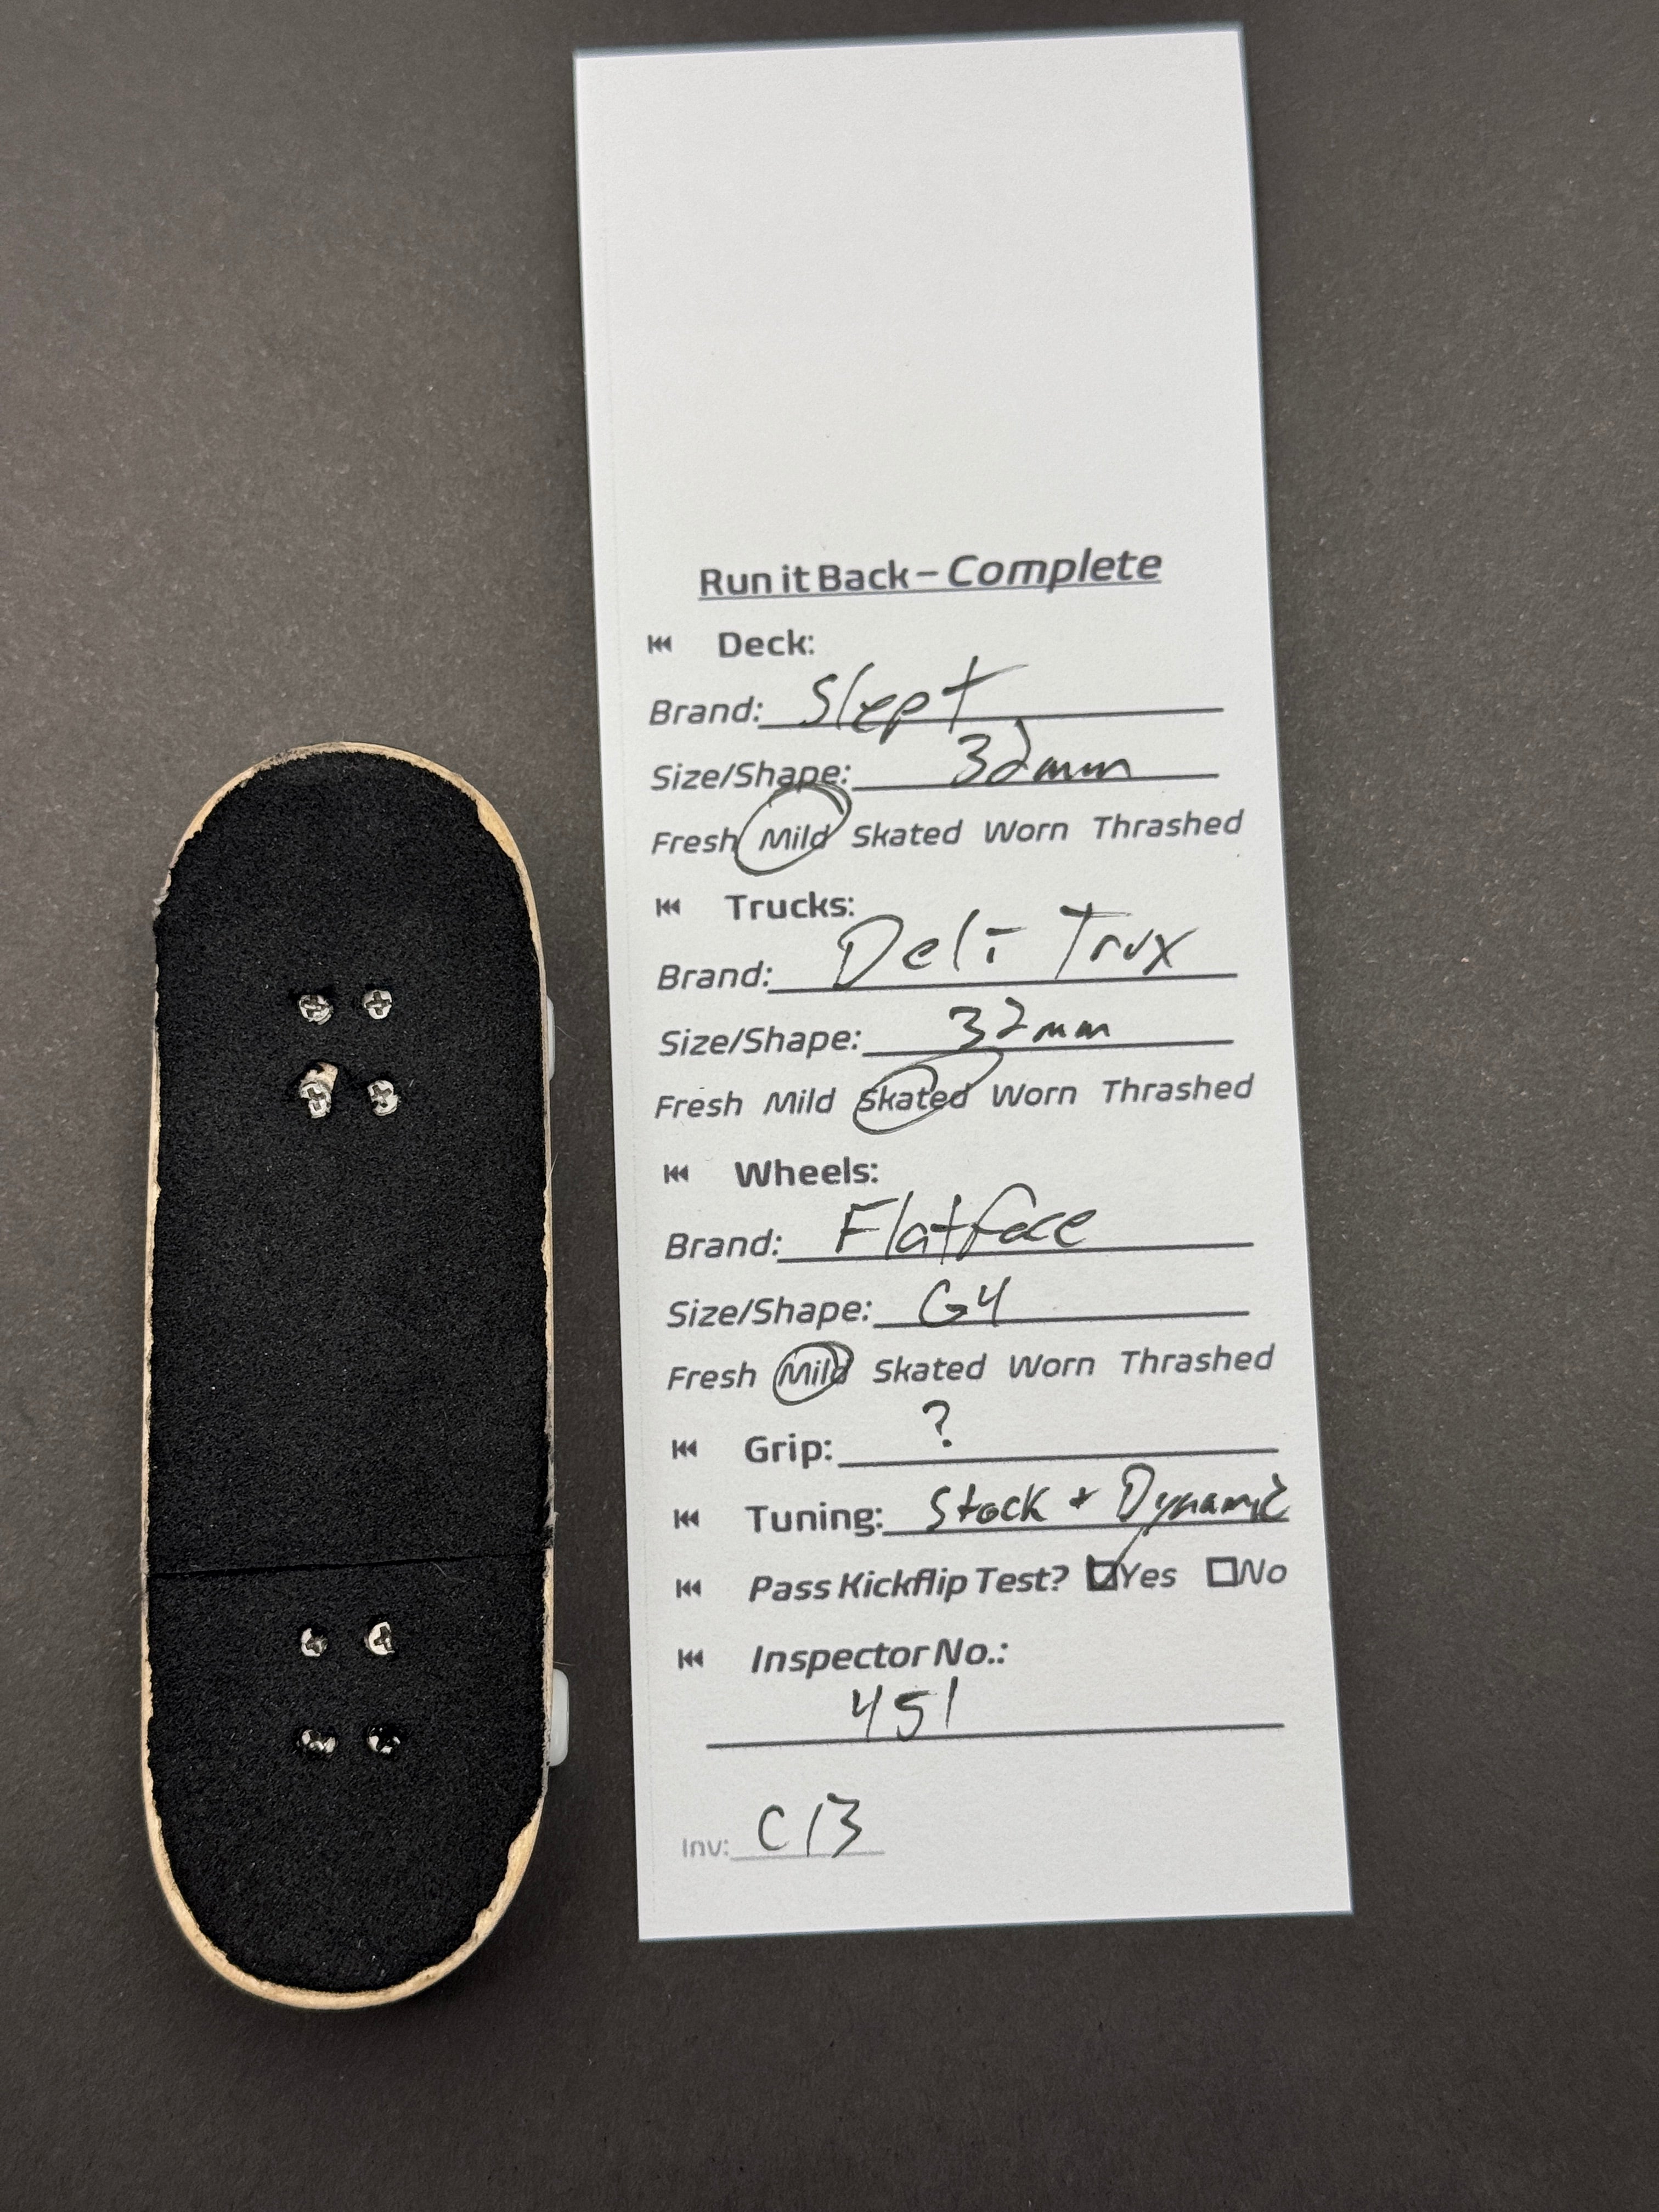 Run it Back – Complete
Deck:
Brand: Slept
Size/Shape: 32mm
Fresh Mild Skated Worn Thrashed
Trucks:
Brand: Deli Trux
Size/Shape: 32mm
Fresh Mild Skated Worn Thrashed
Wheels:
Brand: Flatface
Size/Shape: G4
Fresh Mild Skated Worn Thrashed
Grip: ?
Tuning: Stock + Dynamic
Pass Kickflip Test? ☑Yes ☐No
Inspector No.:
451
Inv: C13